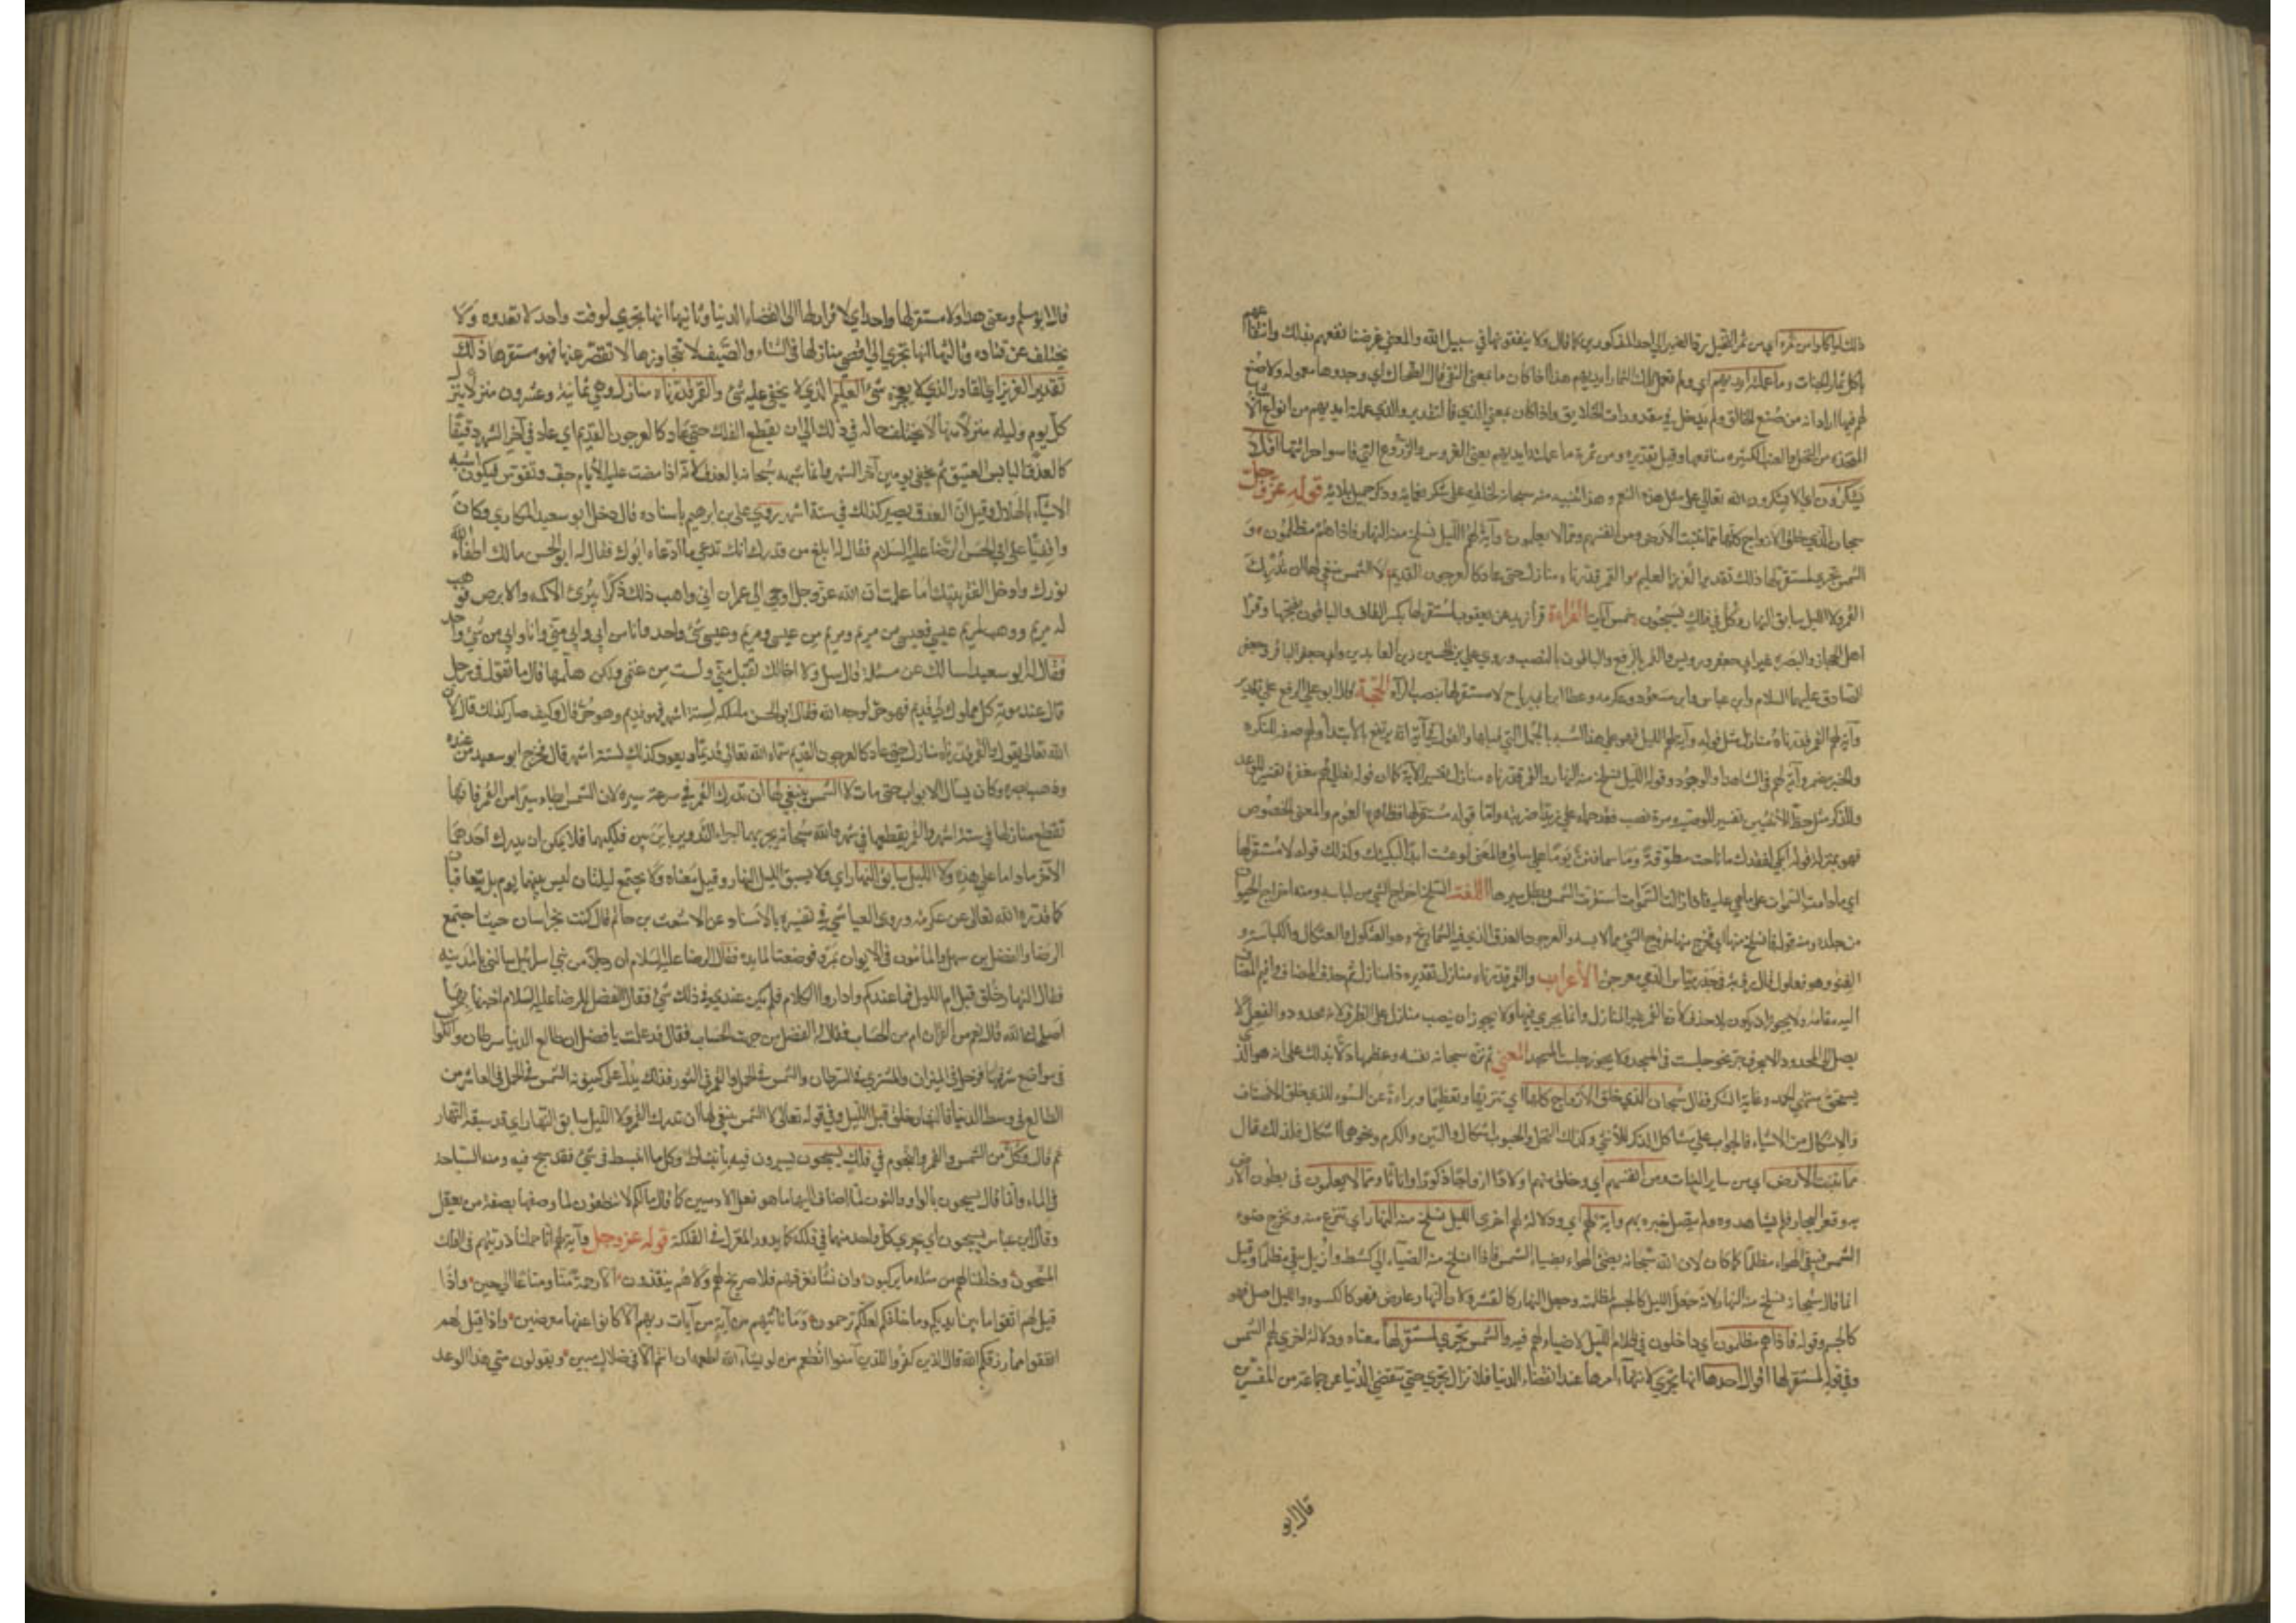 ذلك لياكلوا من ثمره اي من ثمر النخيل رد الضمير الى احد المذكورين كما قال ولا ينفقونها في سبيل الله والمعنى غرضنا نفعهم بذلك وانتفاعهم
باكل ثمار الجنات وما عملته ايديهم اي ولم تعمل تلك الثمار ايديهم هذا اذا كان ما بمعنى النفي قال الضحاك اي وجدوها معمولة ولا صنع
لهم فيها اراد انه من صنع الخالق ولم يدخل في مقدورات الخلايق واذا كان بمعنى الذي فالتقدير والذي عملته ايديهم من انواع الاشيا
المتخذه من النخل والعنب الكثيره منافعها وقيل تقديره ومن ثمرة ما عملته ايديهم يعني الغروس والزروع التي قاسوا حراثتها افلا
يشكرون اي الا يشكرون الله تعالى على مثل هذه النعم وهذا تنبيه منه سبحانه لخلقه على شكر نعمائه وذكر جميل بلائه قوله عز وجل
سبحان الذي خلق الازواج كلها مما تنبت الارض ومن انفسهم ومما لا يعلمون وآية لهم الليل نسلخ منه النهار فاذا هم مظلمون و
الشمس تجري لمستقر لها ذلك تقدير العزيز العليم والقمر قدرناه منازل حتى عاد كالعرجون القديم لا الشمس ينبغي لها ان تدرك
القمر ولا الليل سابق النهار وكل في فلك يسبحون خمس آيات القراءة قرأ زيد عن يعقوب لمستقر لها بكسر القاف والباقون بفتحها وقرأ
اهل الحجاز والبصرة غير ابي جعفر ورويس والقمر بالرفع والباقون بالنصب وروي علي بن الحسين زين العابدين وابي جعفر الباقر وجعفر
الصادق عليهم السلام وابن عباس وابن مسعود وعكرمه وعطا ابن ابي رباح لا مستقر لها بنصب الراء الحجة قال ابو علي الرفع على تقدير
وآية لهم القمر قدرناه منازل مثل قوله وآية لهم الليل فهو على هذا اشبه بالجمل التي قبلها والقول في آية انه يرتفع بالابتدا ولهم صفة للنكرة
والخبر مضمر وآية لهم في المشاهد او الوجود وقوله الليل نسلخ منه النهار والقمر قدرناه منازل تفسير الآية كما ان قوله تعالى لهم مغفرة تفسير للوعد
وللذكر مثل حظ الانثيين تفسير للوصية ومن نصب فقد حمله على زيدا ضربته واما قوله لمستقر لها فظاهره العموم والمعنى الخصوص
فهو بمنزلة قوله ابكي لفقدك ما ناحت مطوقة وما سما فنن يوما على ساق والمعنى لو عشت ابدا لبكيتك وكذلك قوله لا مستقر لها
اي ما دامت السموات على ما هي عليه فاذا زالت السموات استقرت الشمس وبطل سيرها اللغة السلخ اخراج الشي من لباسه ومنه اخراج الحيوان
من جلده ومنه قوله فانسلخ منها اي فخرج منها خروج الشي مما لابسه والعرجون العذق الذي فيه الشماريخ وهو العثكول والعثكال والكباسة و
القنو وهو فعلول قال رؤبة في خدر مياس الدمى معرجن الاعراب والقمر قدرناه منازل تقديره ذا منازل ثم حذف المضاف واقيم المضاف
اليه مقامه ولا يجوز ان يكون بلا حذف لأن القمر غير المنازل وانما يجري فيها ولا يجوز ان ينصب منازل على الظرف لأنه محدود والفعل لا
يصل الى المحدود الا بحرف جر نحو جلست في المسجد ولا يجوز جلست المسجد المعنى ثم نزه سبحانه نفسه وعظمها دالا بذلك على انه هو الذي
يستحق منتهى الحمد وغاية الشكر فقال سبحان الذي خلق الازواج كلها اي تنزيها وتعظيما وبراءة عن السوء للذي خلق الاصناف
والاشكال من الاشياء فالحيوان على مشاكلة الذكر للأنثى وكذلك النخل والحبوب اشكال والتين والكرم ونحوها اشكال فلذلك قال
مما تنبت الارض اي من ساير النبات ومن انفسهم اي وخلق منهم اولادا ازواجا ذكورا واناثا ومما لا يعلمون في بطون الارض
وقعر البحار فلم يشاهدوه ولم يتصل خبره بهم وآية لهم اي ودلالة لهم اخرى الليل نسلخ منه النهار اي ننزع منه ونخرج ضوء
الشمس فيبقى الهواء مظلما كما كان لان الله سبحانه يضيء الهواء بضياء الشمس فاذا انسلخ منه الضياء اي كشط وازيل يبقى مظلما وقيل
انما قال سبحانه نسلخ منه النهار لانه جعل الليل كالجسم لظلمته وجعل النهار كالقشرة ولان النهار عارض فهو كالكسوه والليل اصل فهو
كالجسم وقوله فاذا هم مظلمون اي داخلون في ظلام الليل لا ضياء لهم فيه والشمس تجري لمستقر لها معناه ودلالة اخرى لهم الشمس
وفي قوله لمستقر لها اقوال احدها انها تجري لانتهاء امرها عند انقضاء الدنيا فلا تزال تجري حتى تنقضي الدنيا عن جماعة من المفسرين
قال ابو
قال ابو مسلم ومعنى هذا ولا مستقر لها واحد اي لا قرار لها الى انقضاء الدنيا وثانيها انها تجري لوقت واحد لا تعدوه ولا
يختلف عن قتاده وثالثها انها تجري الى اقصى منازلها في الشتاء والصيف لا تتجاوزها لا تقصر عنها فهو مستقرها ذلك
تقدير العزيز اي القادر الذي لا يعجزه شئ العليم الذي لا يخفى عليه شئ والقمر قدرناه منازل وهي ثمانية وعشرون منزلا ينزل
كل يوم وليله منزلة منها لا يختلف حاله في ذلك الى ان يقطع الفلك حتى عاد كالعرجون القديم اي عاد في آخر الشهر دقيقا
كالعذق اليابس العتيق ثم يخفى يومين آخر الشهر وانما شبهه سبحانه بالعذق لانه اذا مضت عليه الأيام جف وتقوس فيكون اشبه
الاشياء بالهلال وقيل ان العذق يصير كذلك في ستة اشهر روى علي بن ابرهيم باسناده قال دخل ابو سعيد المكاري وكان
واقفيا على ابي الحسن الرضا عليه السلام فقال له ابلغ من قدرك انك تدعي ما ادعاه ابوك فقال له ابو الحسن ما لك اطفأ الله
نورك وادخل الفقر بيتك اما علمت ان الله عز وجل اوحى الى عمران اني واهب ذلك ذكرا يبرئ الاكمه والابرص فوهب
له مريم ووهب لمريم عيسى فعيسى من مريم ومريم من عيسى ومريم وعيسى شئ واحد وانا من ابي وابي مني وانا وابي من شئ واحد
فقال له ابو سعيد اسالك عن مسئلة قال سل ولا اخالك تقبل مني ولست من غنمي ولكن هلمها قال ما تقول في رجل
قال عند موته كل مملوك لي قديم فهو حر لوجه الله فقال ابو الحسن ما ملكه لستة اشهر فهو قديم وهو حر قال وكيف صار كذلك قال لأن
الله تعالى يقول والقمر قدرناه منازل حتى عاد كالعرجون القديم سماه الله تعالى قديما ويعود كذلك لستة اشهر قال فخرج ابو سعيد من عنده
وذهب بصره وكان يسأل الابواب حتى مات لا الشمس ينبغي لها ان تدرك القمر في سرعة سيره لان الشمس ابطاء سيرا من القمر فانها
تقطع منازلها في سنة اشهر والقمر يقطعها في شهر والله سبحانه يجريهما اجراء التدوير باين بين فلكيهما فلا يمكن ان يدرك احدهما
الآخر ما داما على هذه ولا الليل سابق النهار اي ولا يسبق الليل النهار وقيل معناه ولا يجتمع ليلتان ليس بينهما يوم بل يتعاقبان
كما قدره الله تعالى عن عكرمه وروى العياشي في تفسيره بالاسناد عن الاشعث بن حاتم قال كنت بخراسان حيث اجتمع
الرضا والفضل بن سهل والمأمون في الايوان بمرو فوضعت المايده فقال الرضا عليه السلام ان رجلا من بني اسرائيل سالني بالمدينه
فقال النهار خلق قبل ام الليل فما عندكم واداروا الكلام فلم يكن عندهم في ذلك شئ فقال الفضل للرضا عليه السلام اخبرنا بها
اصلحك الله قال نعم من القرآن ام من الحساب فقال له الفضل من جهة الحساب فقال قد علمت يا فضل ان طالع الدنيا سرطان والكواكب
في مواضع شرفها فزحل في الميزان والمشتري في السرطان والشمس في الحمل والقمر في الثور فذلك يدل على كينونة الشمس في الحمل في العاشر من
الطالع في وسط الدنيا فالنهار خلق قبل الليل وفي قوله تعالى لا الشمس ينبغي لها ان تدرك القمر ولا الليل سابق النهار اي قد سبقه النهار
ثم قال وكل من الشمس والقمر والنجوم في فلك يسبحون يسيرون فيه بانبساط وكل ما انبسط في شئ فقد سبح فيه ومنه السباحة
في الماء وانما قال يسبحون بالواو والنون لما اضاف اليها ما هو فعل الادميين كما قال ما لكم لا تنطقون لما وصفها بصفة من يعقل
وقال ابن عباس يسبحون اي يجري كل واحد منهما في فلكه كما يدور المغزل في الفلكة قوله عز وجل وآية لهم انا حملنا ذريتهم في الفلك
المشحون وخلقنا لهم من مثله ما يركبون وان نشأ نغرقهم فلا صريخ لهم ولا هم ينقذون الا رحمة منا ومتاعا الى حين واذا
قيل لهم اتقوا ما بين ايديكم وما خلفكم لعلكم ترحمون وما تاتيهم من آية من آيات ربهم الا كانوا عنها معرضين واذا قيل لهم
انفقوا مما رزقكم الله قال الذين كفروا للذين آمنوا انطعم من لو يشاء الله اطعمه ان انتم الا في ضلال مبين ويقولون متى هذا الوعد